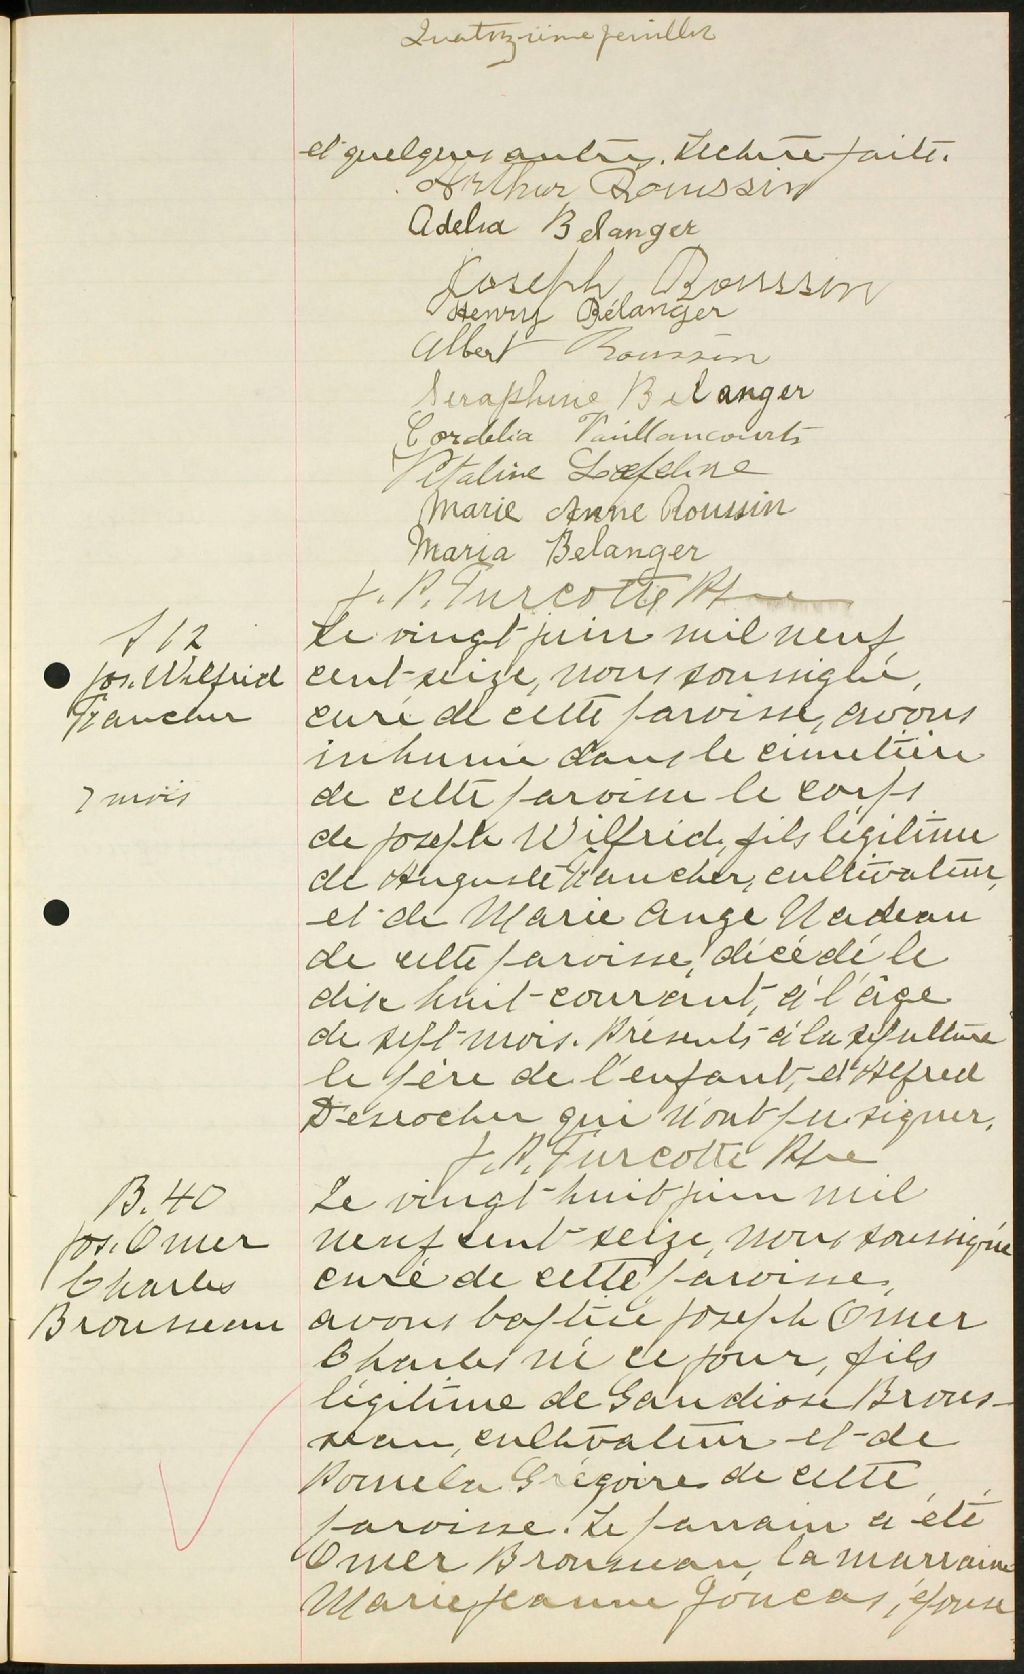 Quatorzième feuillet
et quelques autres. Lecture faite.
Arthur Roussin
Adelia Belanger
Joseph Roussin
Henry Bélanger
Albert Roussin
Seraphine Belanger
Cordelia Vaillancourt
Vitaline
Marie Anne Roussin
Maria Belanger
J. P. Turcotte Ptre
S 12
Jos. Wilfrid
Francher
7 mois
Le vingt juin mil neuf
cent seize, nous soussigné,
curé de cette paroisse, avons
inhumé dans le cimetière
de cette paroisse le corps
de Joseph Wilfrid, fils légitime
de Auguste Francher, cultivateur,
et de Marie Ange Nadeau
de cette paroisse, décédé le
dix huit courant, à l'âge
de sept mois. Présents à la sépulture
le père de l'enfant, et Alfred
Desrocher qui n'ont pu signer.
J. P. Turcotte Ptre
B. 40
Jos. Omer
Charles
Brousseau
Le vingt-huit juin mil
neuf cent seize, nous soussigné
curé de cette paroisse,
avons baptisé Joseph Omer
Charles né ce jour, fils
légitime de Gaudiose Brous-
seau, cultivateur et de
Pomela Grégoire de cette
paroisse. Le parrain a été
Omer Brousseau, la marraine
Marie Jeanne Joncas, épouse